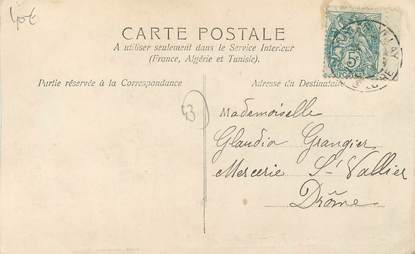 CARTE POSTALE
A utiliser seulement dans le Service Intérieur
(France, Algérie et Tunisie).
Partie réservée à la Correspondance
Adresse du Destinataire
5
43
Mademoiselle
Glaudia Grangier
Mercerie St Vallier
Drôme